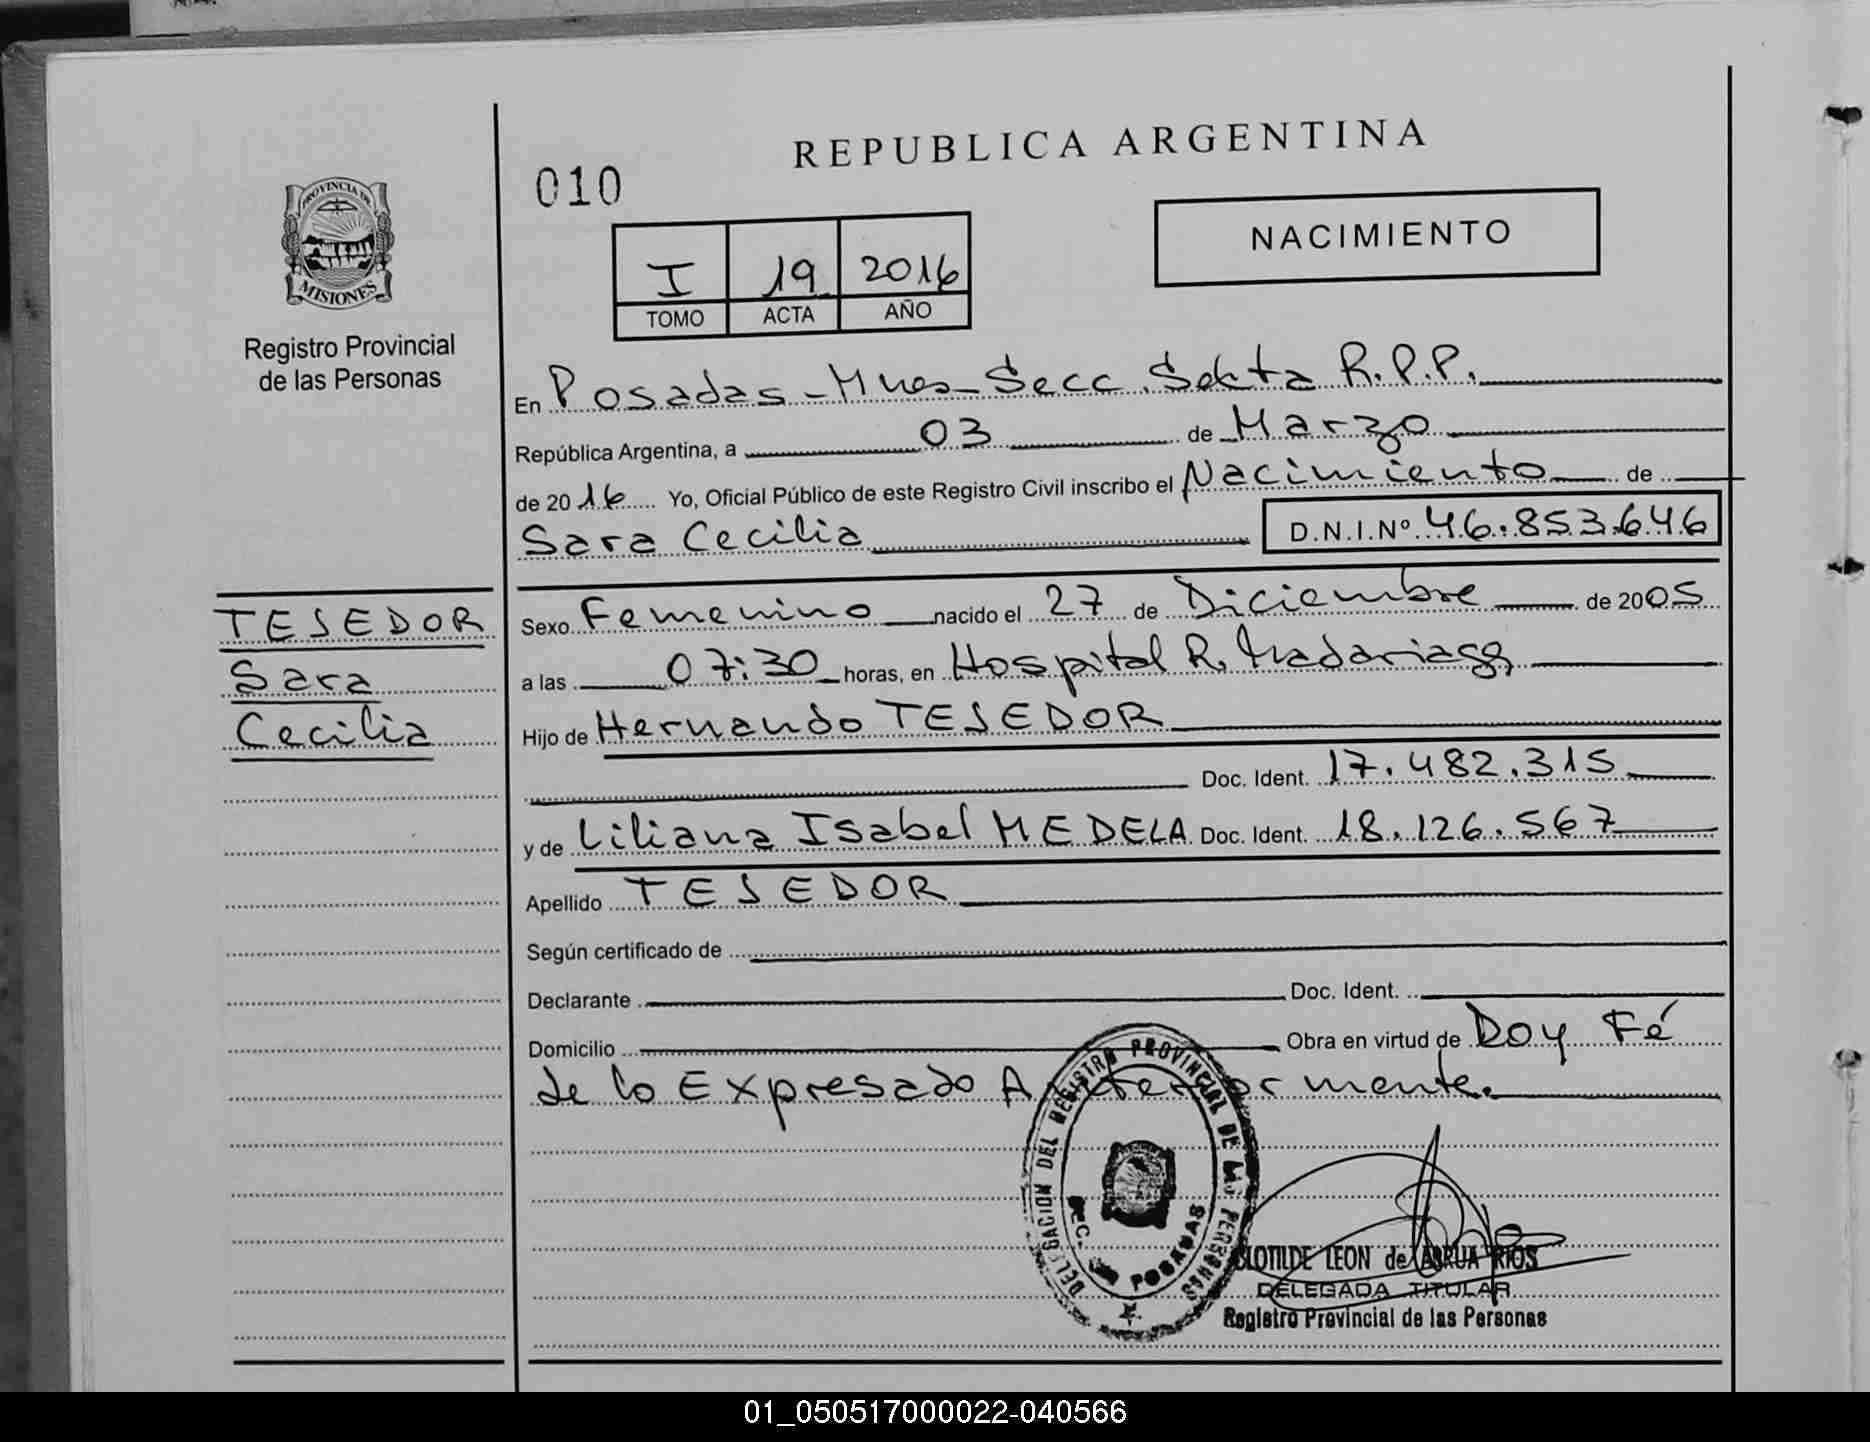 REPUBLICA ARGENTINA
010
NACIMIENTO
I 19 2016
TOMO ACTA AÑO
PROVINCIA DE
MISIONES
Registro Provincial
de las Personas
En Posadas - Mnes - Secc. Sexta R.P.P.
República Argentina, a 03 de Marzo
de 2016 Yo, Oficial Público de este Registro Civil inscribo el Nacimiento de
Sara Cecilia D.N.I.Nº 46.853.646
TESEDOR
Sara
Cecilia
Sexo Femenino nacido el 27 de Diciembre de 2005
a las 07:30 horas, en Hospital R. Madariaga
Hijo de Hernando TESEDOR
Doc. Ident. 17.482.315
y de Liliana Isabel MEDELA Doc. Ident. 18.126.567
Apellido TESEDOR
Según certificado de
Declarante Doc. Ident.
Domicilio Obra en virtud de Doy Fé
de lo Expresado Anteriormente.
DELEGACION DEL REGISTRO PROVINCIAL DE LAS PERSONAS
SEC. POSADAS
CLOTILDE LEON de RIOS
DELEGADA TITULAR
Registro Provincial de las Personas
01_050517000022-040566